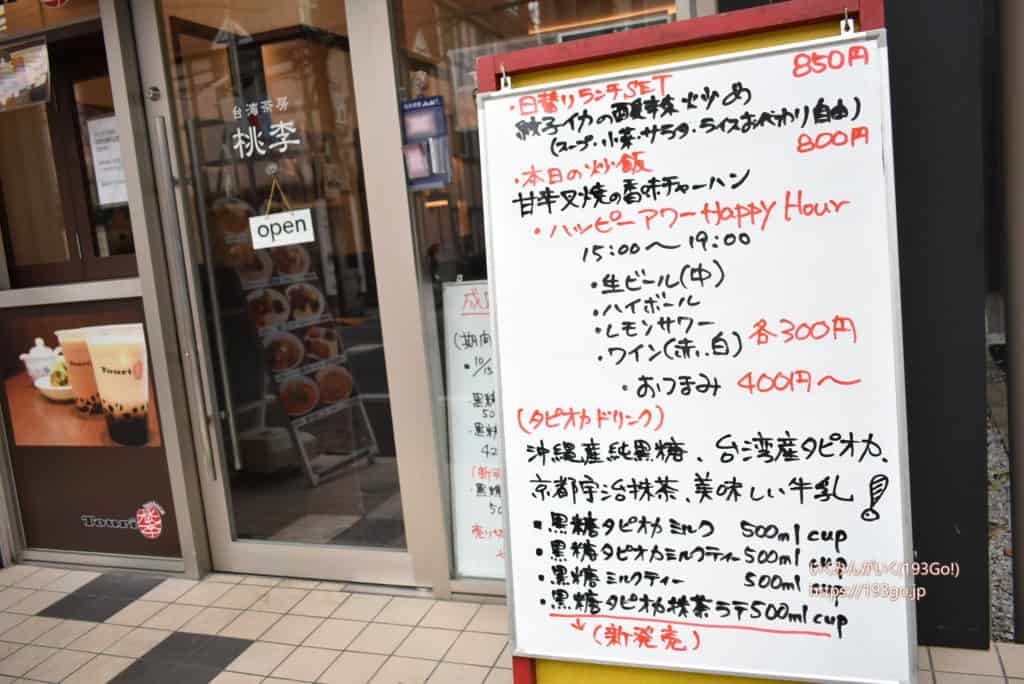 台湾茶房
桃李
open
850円
・日替りランチSET
紋子イカの酸辣炒め
(スープ・小菜・サラダ・ライスおべわり自由)
800円
・本日の炒飯
甘辛叉焼の香味チャーハン
・ハッピーアワーHappy Hour
15:00〜19:00
・生ビール(中)
・ハイボール
・レモンサワー
・ワイン(赤、白)
各300円
・おつまみ 400円〜
(タピオカドリンク)
沖縄産純黒糖、台湾産タピオカ、
京都宇治抹茶、美味しい牛乳!
・黒糖タピオカミルク 500ml cup
・黒糖タピオカミルクティー 500ml cup
・黒糖ミルクティー 500ml cup
・黒糖タピオカ抹茶ラテ500ml cup
(新発売)
Touri
Touri
(期向
・10/15
・黒糖
50
・黒糖
42
・黒糖
50
いくみんがいく(193Go!)
https://193gu.jp